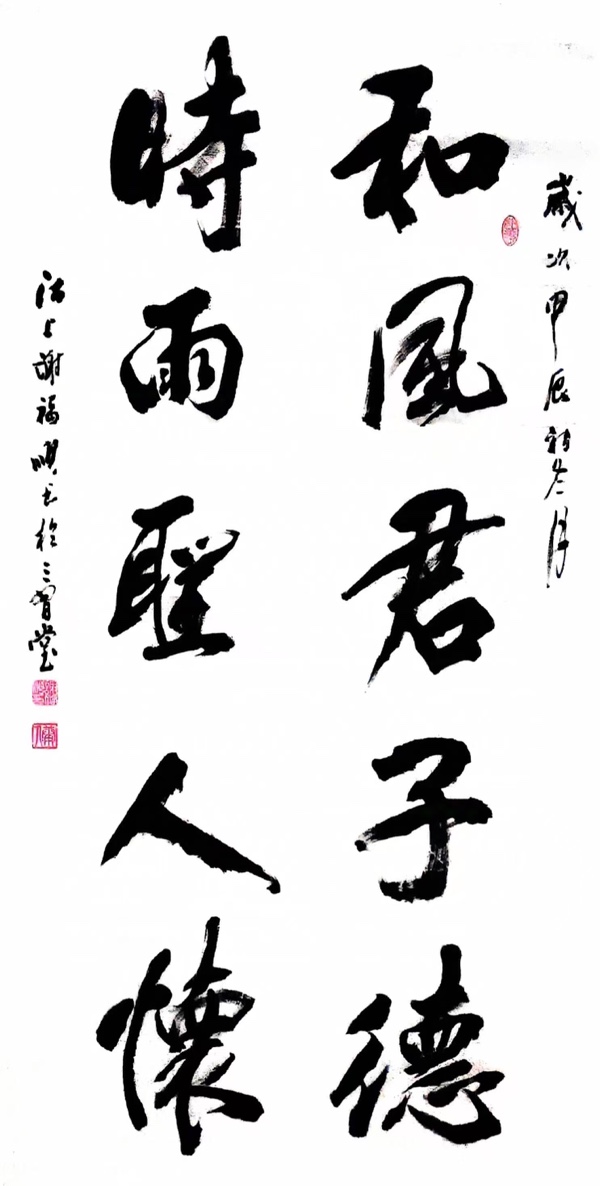 歲次甲辰初冬月
和風君子德
時雨聖人懷
沽上謝福順書於三習堂